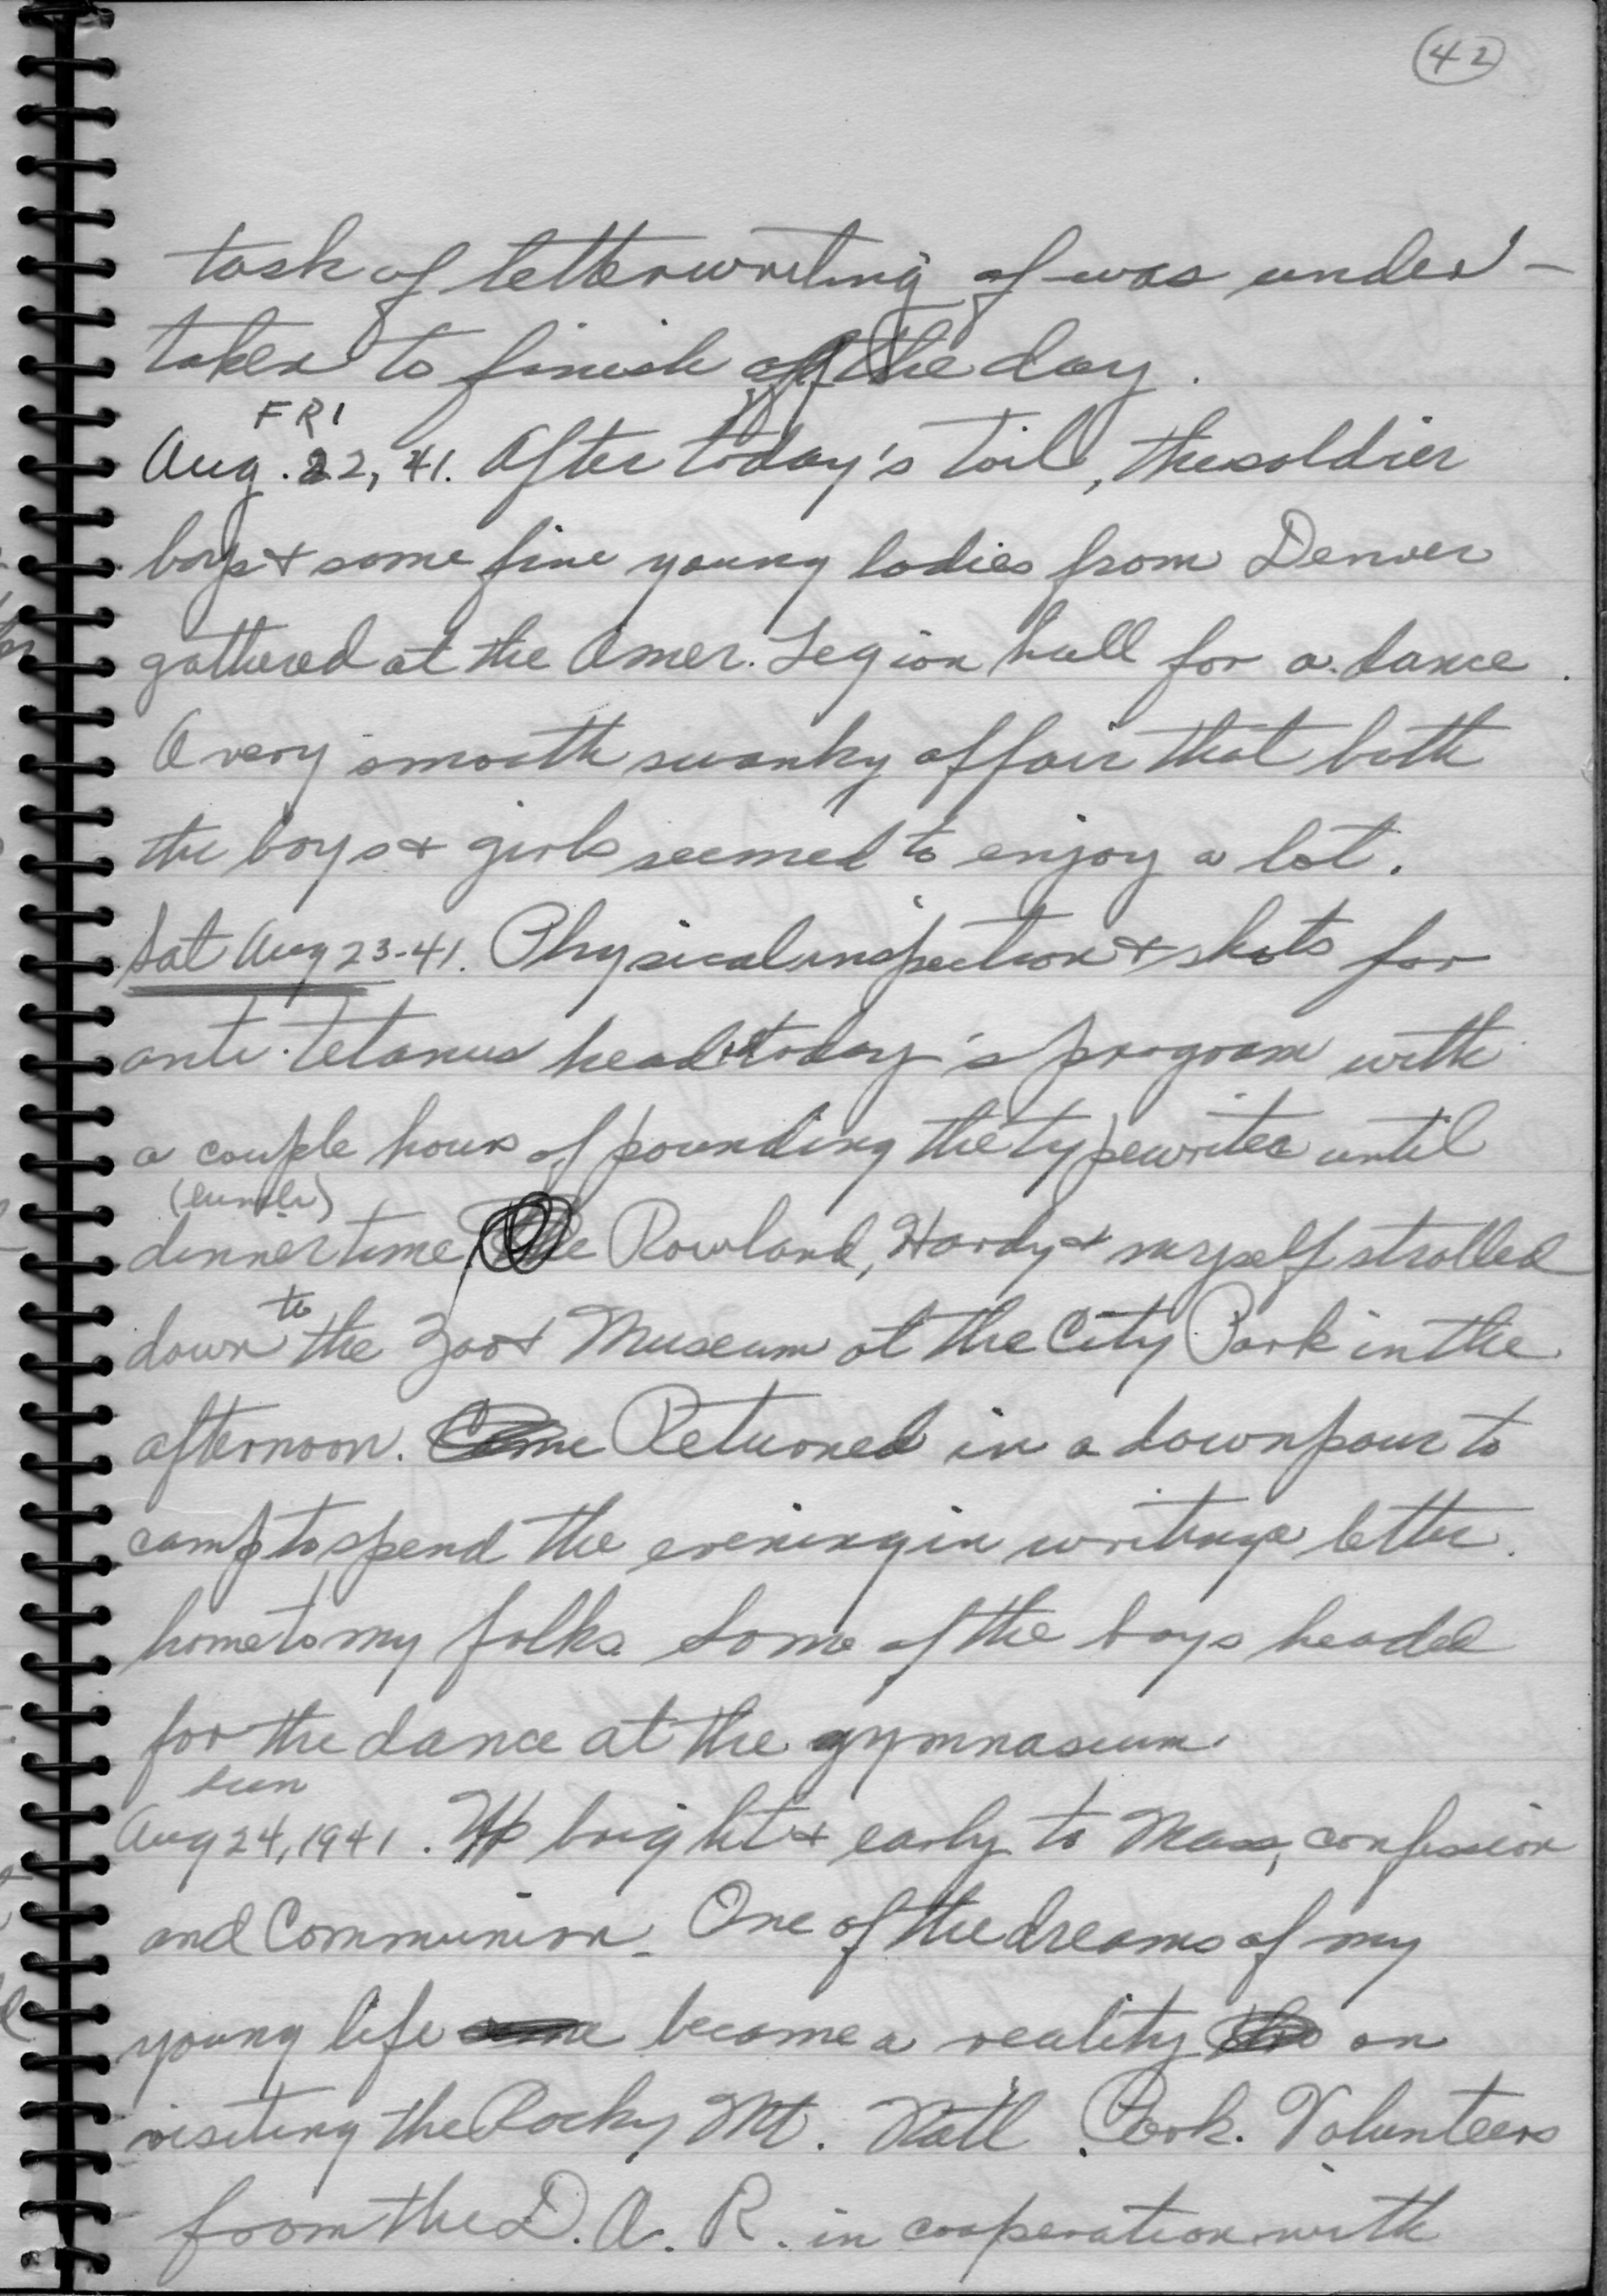 42
task of letterwriting of was under-
taken to finish off the day.
FRI
Aug. 22, 41. After today's toil, the soldier
boys & some fine young ladies from Denver
gathered at the Amer. Legion hall for a dance.
A very smooth swanky affair that both
the boys & girls seemed to enjoy a lot.
Sat Aug 23-41. Physical inspection & shots for
anti-tetanus head today's program with
a couple hours of pounding the typewriter until
(lunch)
dinner time. The Rowland, Hardy & myself strolled
to
down the Zoo & Museum at the City Park in the
afternoon. Came Returned in a downpour to
camp to spend the evening in writing a letter
home to my folks. Some of the boys headed
for the dance at the gymnasium.
Sun
Aug 24, 1941. Up bright & early to Mass, confession
and Communion. One of the dreams of my
young life came became a reality on
visiting the Rocky Mt. Nat'l Park. Volunteers
from the D. A. R. in cooperation with